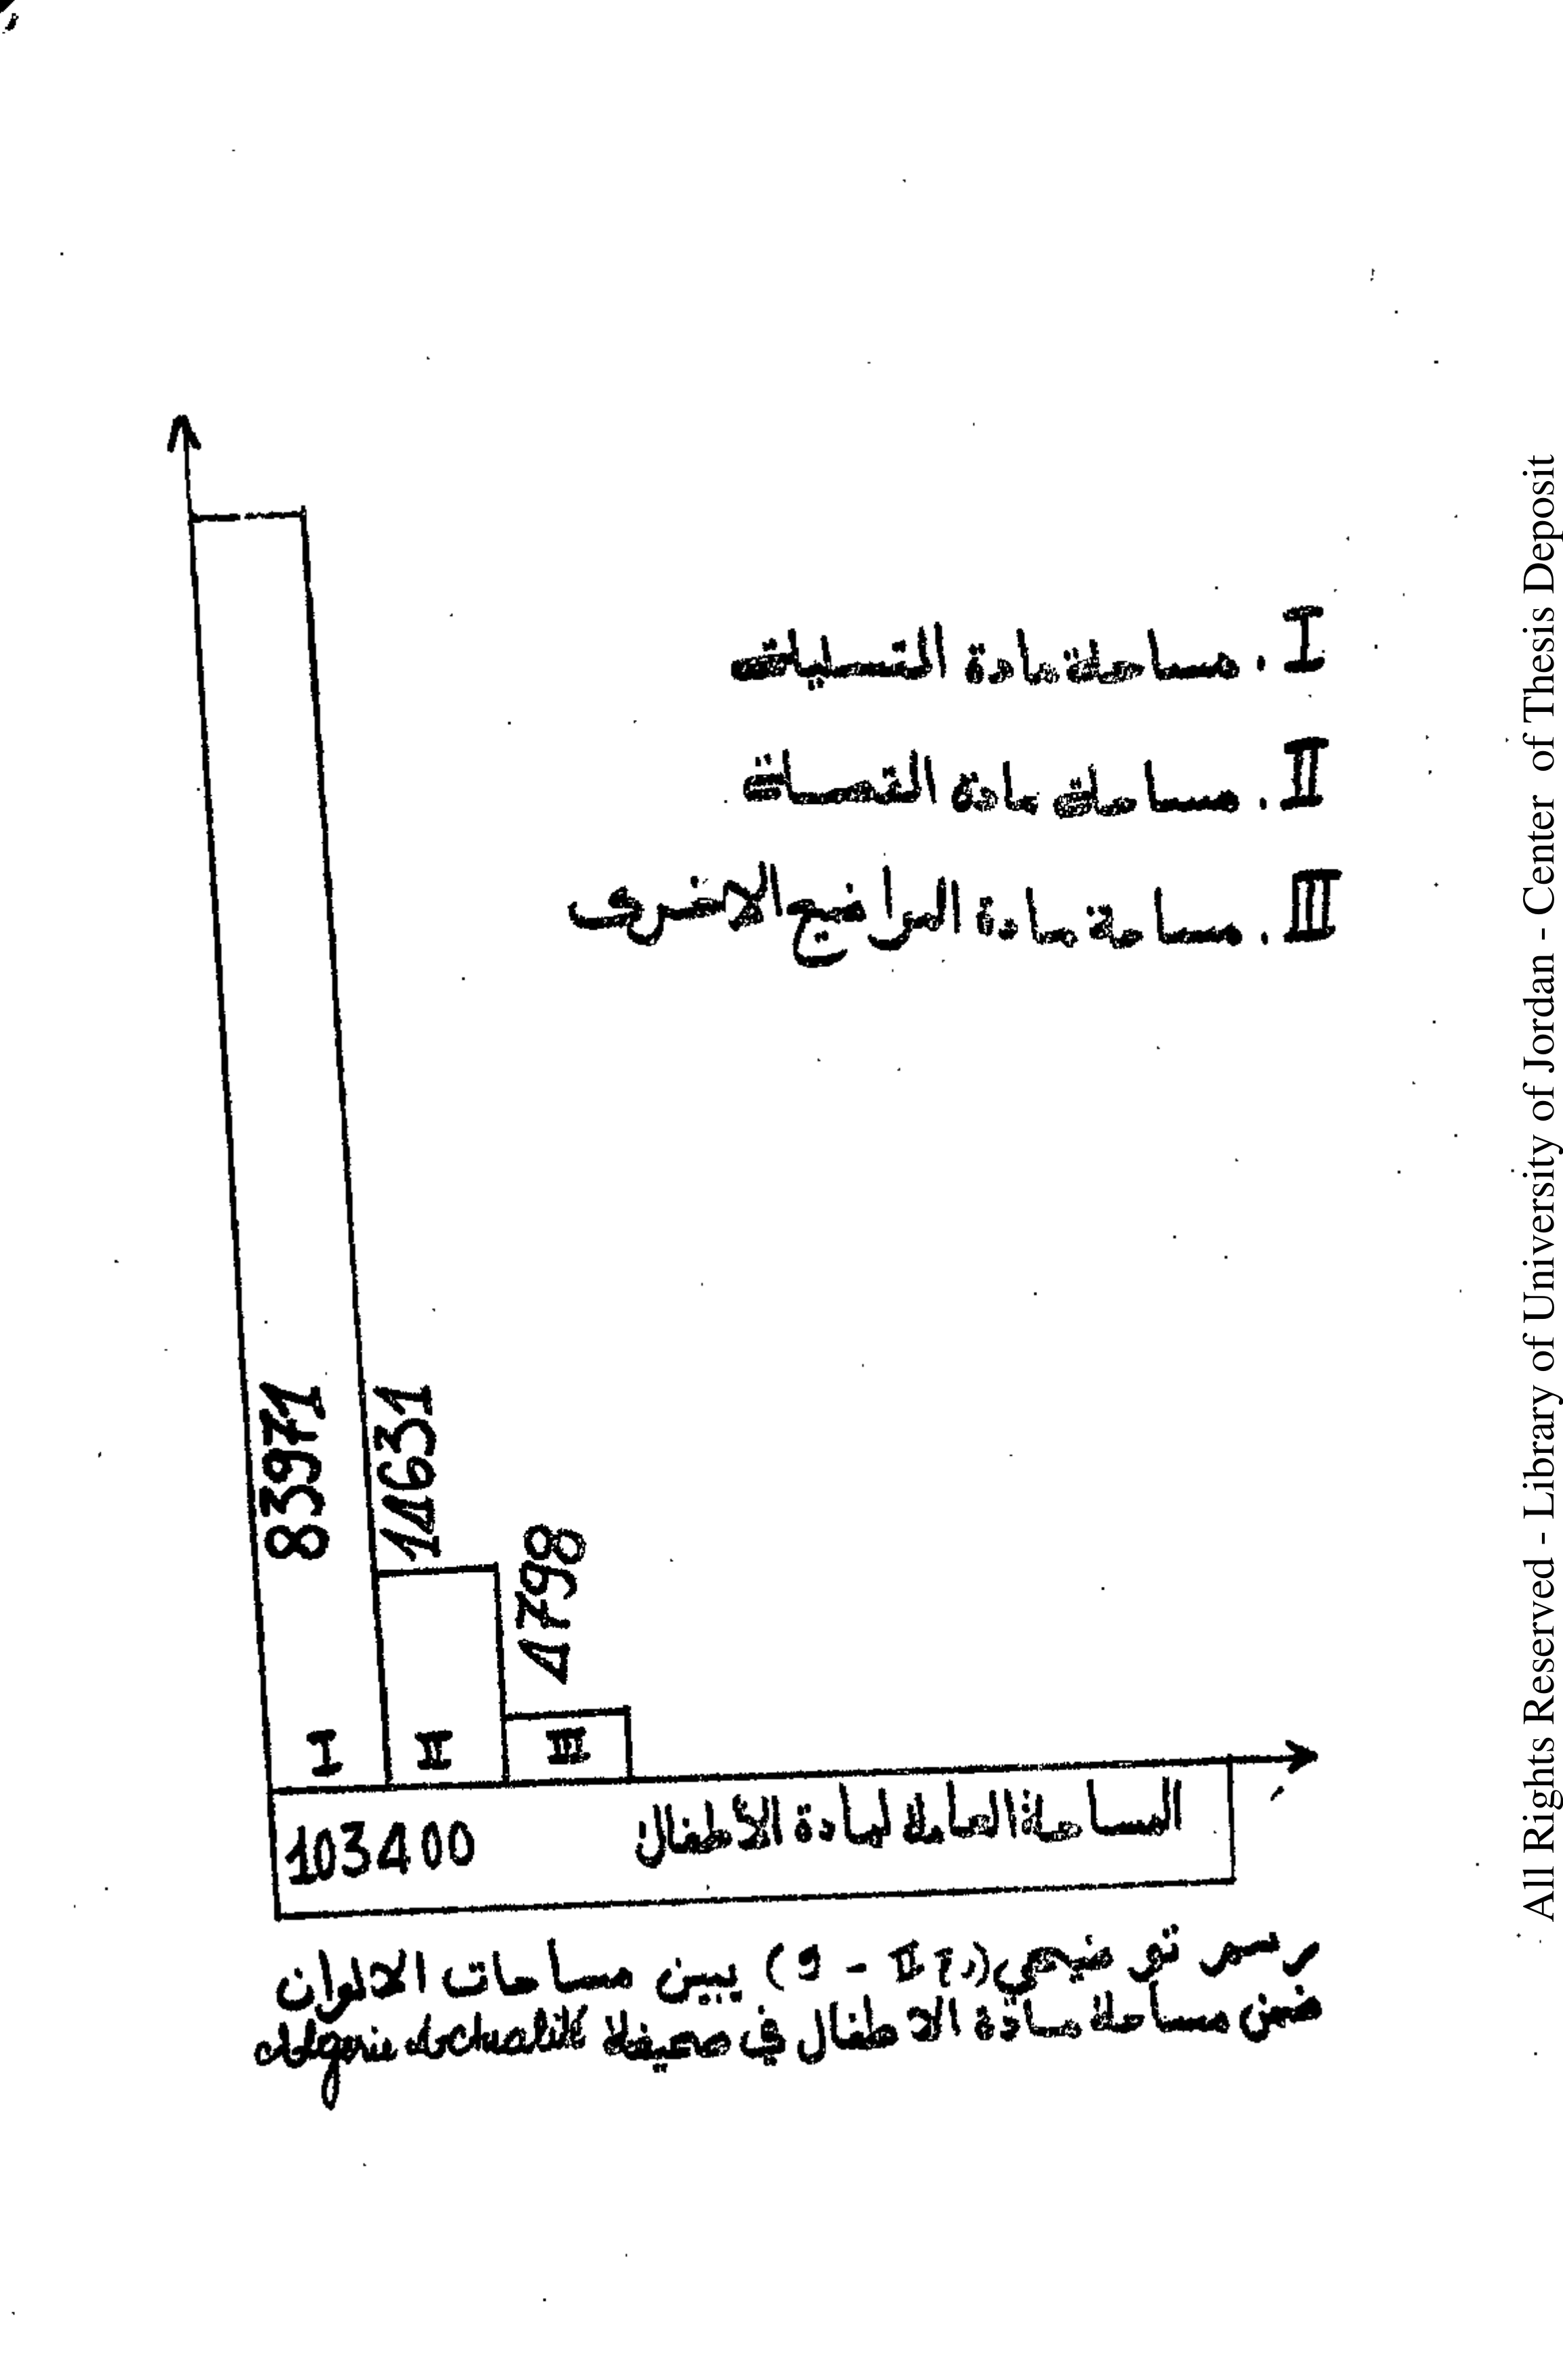 I. مساحة مادة التسليات
II. مساحة مادة القصات
III. مساحة مادة المواضيع الاخرى
83971
14631
4798
I
II
III
103400 المساحة العامة لمادة الأطفال
رسم توضيحي (II - 9) يبين مساحات الالوان
ضمن مساحة مادة الاطفال في صحيفة Algerie Actualité
All Rights Reserved - Library of University of Jordan - Center of Thesis Deposit